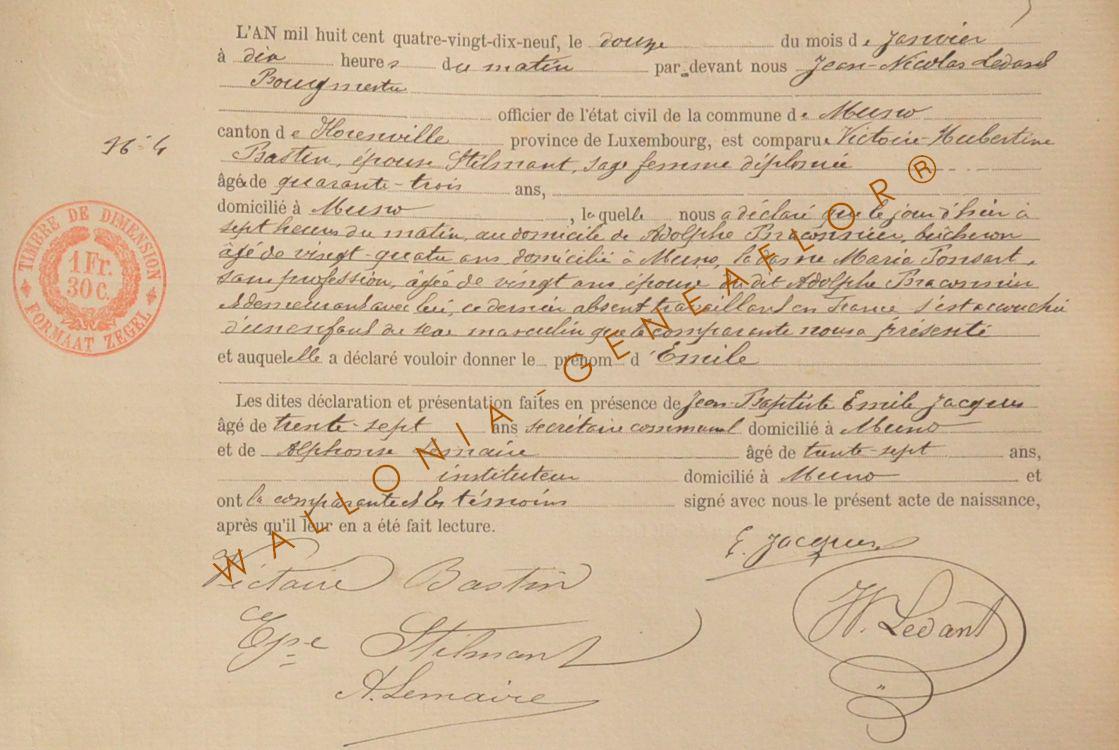 L'AN mil huit cent quatre-vingt-dix-neuf, le douze du mois de Janvier
à dix heures du matin par-devant nous Jean-Nicolas Ledant
Bourgmestre
officier de l'état civil de la commune de Muno
canton de Florenville province de Luxembourg, est comparue Victoire Hubertine
Bastin, épouse Stilmant, sage femme diplomée
âgée de quarante-trois ans,
domicilié à Muno, laquelle nous a déclaré que le jour d'hier à
sept heures du matin, au domicile de Adolphe Braconnier, bûcheron
âgé de vingt-quatre ans domicilié à Muno, la dame Maria Ponsart,
sans profession, âgée de vingt ans épouse du dit Adolphe Braconnier
et demeurant avec lui, ce dernier absent travaillant en France s'est accouchée
d'un enfant du sexe masculin que la comparante nous a présenté
et auquel elle a déclaré vouloir donner le prénom d'Emile
Les dites déclaration et présentation faites en présence de Jean-Baptiste Emile Jacques
âgé de trente-sept ans secrétaire communal domicilié à Muno
et de Alphonse Lemaire âgé de trente-sept ans,
instituteur domicilié à Muno et
ont la comparante et les témoins signé avec nous le présent acte de naissance,
après qu'il leur en a été fait lecture.
E. Jacques
Victoire Bastin
Epse Stilmant
A. Lemaire
Ledant
TIMBRE DE DIMENSION
1 Fr.
30 C.
FORMAAT ZEGEL
WALLONIA-GENEAFLOR ®